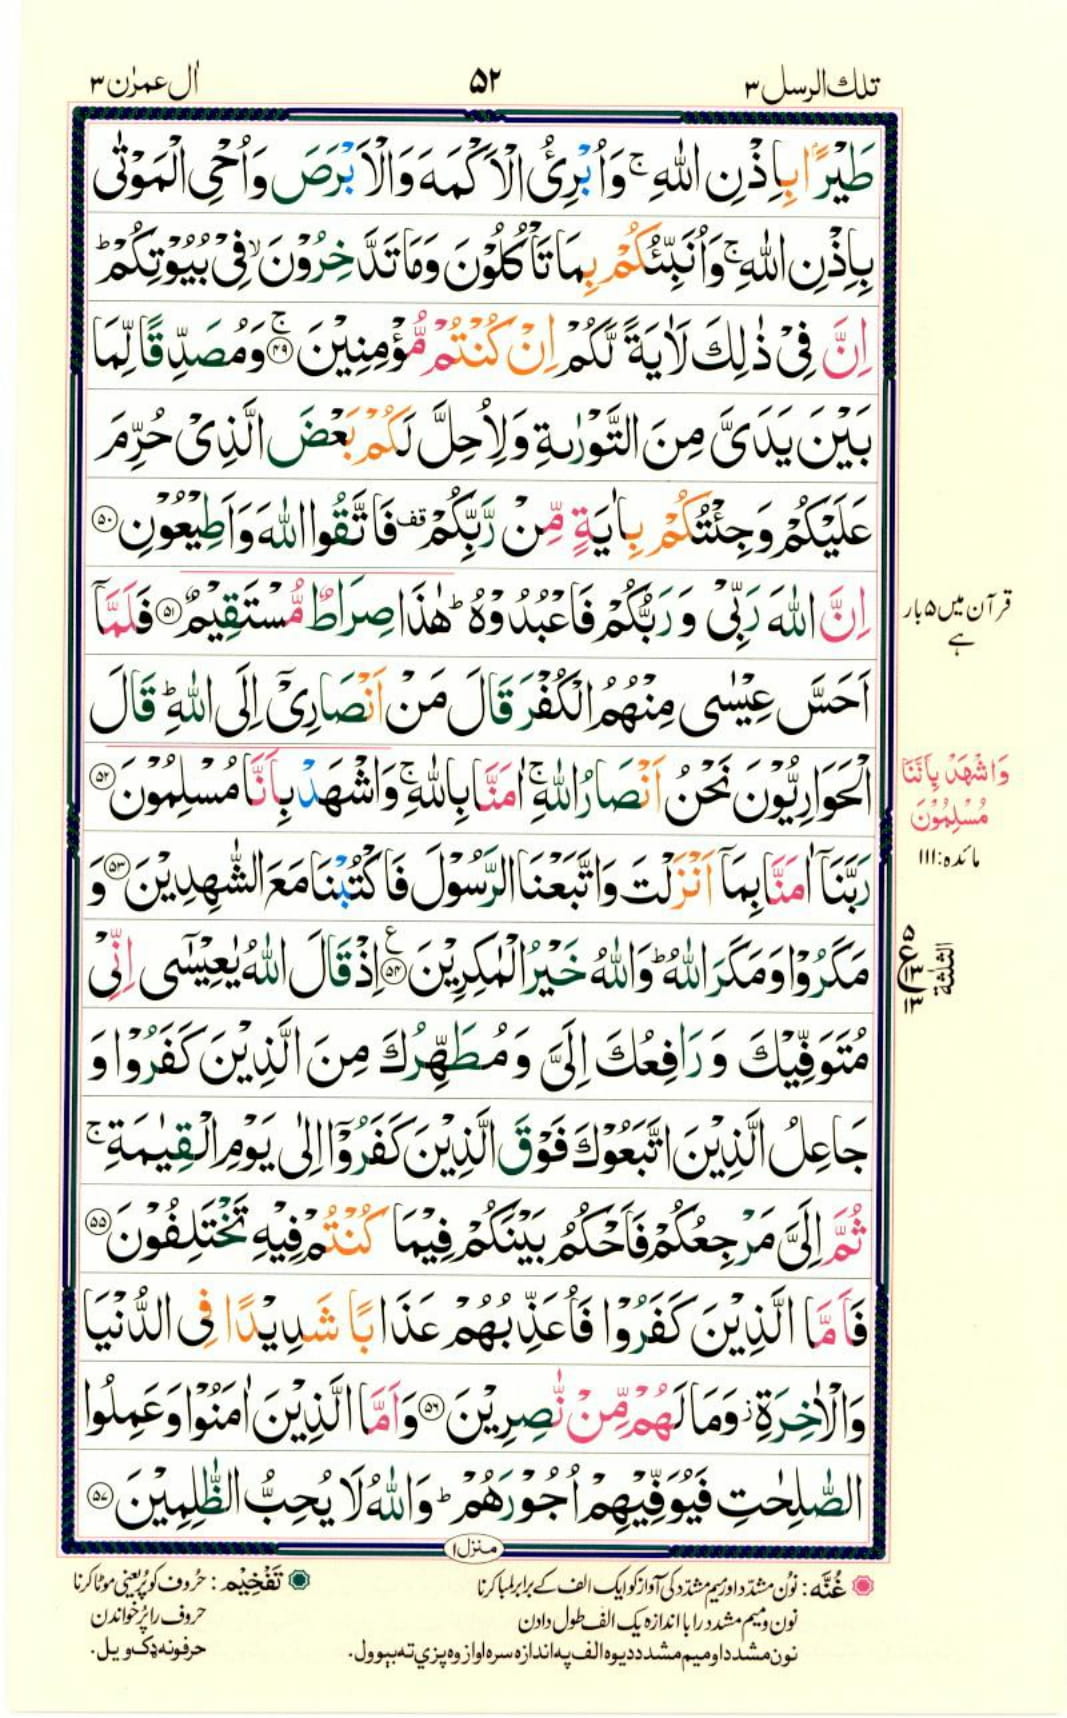 تلك الرسل ٣
٥٢
اٰل عمرٰن ٣
طَيْرًۢا بِاِذْنِ اللّٰهِ ۚ وَاُبْرِئُ الْاَكْمَهَ وَالْاَبْرَصَ وَاُحْىِ الْمَوْتٰى
بِاِذْنِ اللّٰهِ ۚ وَاُنَبِّئُكُمْ بِمَا تَاْكُلُوْنَ وَمَا تَدَّخِرُوْنَ ۙ فِىْ بُيُوْتِكُمْ ؕ
اِنَّ فِىْ ذٰلِكَ لَاٰيَةً لَّكُمْ اِنْ كُنْتُمْ مُّؤْمِنِيْنَ ۚ ﴿۴۹﴾ وَمُصَدِّقًا لِّمَا
بَيْنَ يَدَىَّ مِنَ التَّوْرٰٮةِ وَلِاُحِلَّ لَكُمْ بَعْضَ الَّذِىْ حُرِّمَ
عَلَيْكُمْ وَجِئْتُكُمْ بِاٰيَةٍ مِّنْ رَّبِّكُمْ قف فَاتَّقُوا اللّٰهَ وَاَطِيْعُوْنِ ﴿۵۰﴾
اِنَّ اللّٰهَ رَبِّىْ وَرَبُّكُمْ فَاعْبُدُوْهُ ؕ هٰذَا صِرَاطٌ مُّسْتَقِيْمٌ ﴿۵۱﴾ فَلَمَّاۤ
اَحَسَّ عِيْسٰى مِنْهُمُ الْكُفْرَ قَالَ مَنْ اَنْصَارِىْۤ اِلَى اللّٰهِ ؕ قَالَ
الْحَوَارِيُّوْنَ نَحْنُ اَنْصَارُ اللّٰهِ ۚ اٰمَنَّا بِاللّٰهِ ۚ وَاشْهَدْ بِاَنَّا مُسْلِمُوْنَ ﴿۵۲﴾
رَبَّنَاۤ اٰمَنَّا بِمَاۤ اَنْزَلْتَ وَاتَّبَعْنَا الرَّسُوْلَ فَاكْتُبْنَا مَعَ الشّٰهِدِيْنَ ﴿۵۳﴾ وَ
مَكَرُوْا وَمَكَرَ اللّٰهُ ؕ وَاللّٰهُ خَيْرُ الْمٰكِرِيْنَ ﴿۵۴﴾ ع اِذْ قَالَ اللّٰهُ يٰعِيْسٰۤى اِنِّىْ
مُتَوَفِّيْكَ وَرَافِعُكَ اِلَىَّ وَمُطَهِّرُكَ مِنَ الَّذِيْنَ كَفَرُوْا وَ
جَاعِلُ الَّذِيْنَ اتَّبَعُوْكَ فَوْقَ الَّذِيْنَ كَفَرُوْۤا اِلٰى يَوْمِ الْقِيٰمَةِ ۚ
ثُمَّ اِلَىَّ مَرْجِعُكُمْ فَاَحْكُمُ بَيْنَكُمْ فِيْمَا كُنْتُمْ فِيْهِ تَخْتَلِفُوْنَ ﴿۵۵﴾
فَاَمَّا الَّذِيْنَ كَفَرُوْا فَاُعَذِّبُهُمْ عَذَابًا شَدِيْدًا فِى الدُّنْيَا
وَالْاٰخِرَةِ ز وَمَا لَهُمْ مِّنْ نّٰصِرِيْنَ ﴿۵۶﴾ وَاَمَّا الَّذِيْنَ اٰمَنُوْا وَعَمِلُوا
الصّٰلِحٰتِ فَيُوَفِّيْهِمْ اُجُوْرَهُمْ ؕ وَاللّٰهُ لَا يُحِبُّ الظّٰلِمِيْنَ ﴿۵۷﴾
قرآن میں ۵ بار
ہے
وَاشْهَدْ بِاَنَّنَا
مُسْلِمُوْنَ
مائدہ: ۱۱۱
۵
ع
۱۳
۱۳
الثلثة
منزل ۱
غُنَّه: نُون مشدّد اور میم مشدّد کی آواز کو ایک الف کے برابر لمبا کرنا
نون و میم مشدد را با اندازہ یک الف طول دادن
نون مشدد او میم مشدد د یوه الف په اندازه سره اواز وه پزې ته بېوول.
تَفْخِيْم: حُروف کو پُر یعنی موٹا کرنا
حروف را پُر خواندن
حرفونه ډک ویل.